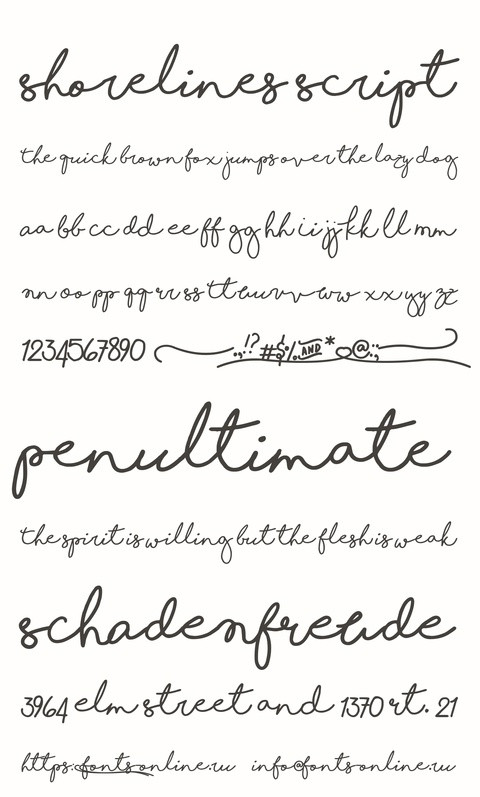 shorelines script
the quick brown fox jumps over the lazy dog
aa bb cc dd ee ff gg hh ii jj kk ll mm
nn oo pp qq rr ss tt uu vv ww xx yy zz
1234567890 .,!?#$%AND*@:;
penultimate
the spirit is willing but the flesh is weak
schadenfreude
3964 elm street and 1370 rt. 21
https:fontsonline.ru info@fontsonline.ru